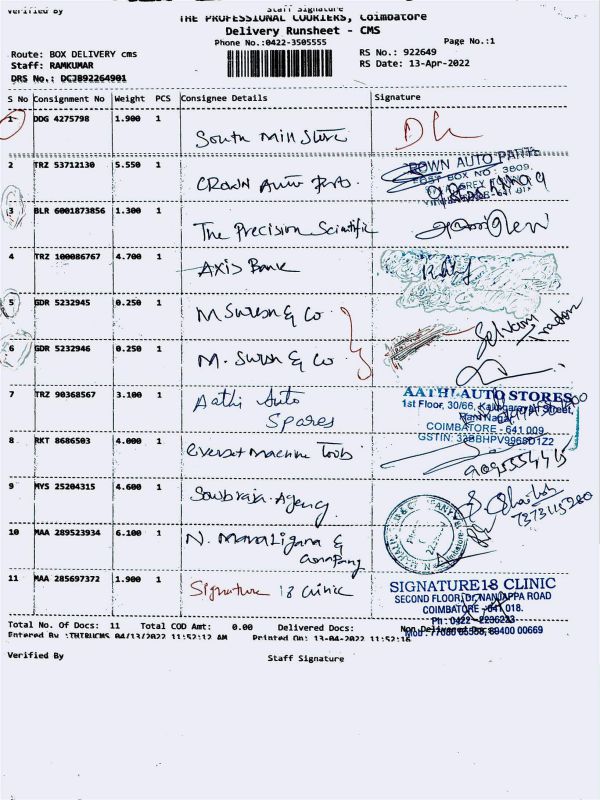 Verified By Staff Signature
THE PROFESSIONAL COURIERS, Coimbatore
Delivery Runsheet - CMS
Phone No.:0422-3505555 Page No.:1
Route: BOX DELIVERY cms RS No.: 922649
Staff: RAMKUMAR RS Date: 13-Apr-2022
DRS No.: DCJB92264901
S No Consignment No Weight PCS Consignee Details Signature
1 DDG 4275798 1.900 1 South Mill Store
2 TRZ 53712130 5.550 1 Crown Auto
CROWN AUTO PARTS
POST BOX NO : 3809,
3 BLR 6001873856 1.300 1 The Precision Scientific
4 TRZ 100086767 4.700 1 Axis Bank
5 GDR 5232945 0.250 1 M Suresh & Co
Selvam Traders
6 GDR 5232946 0.250 1 M. Suresh & Co
7 TRZ 90368567 3.100 1 Aathi Auto Spares
AATHI AUTO STORES
1st Floor, 30/66, Kalingarayan Street,
Ram Nagar
COIMBATORE - 641 009
GSTIN: 33BHPV9968D1Z2
8 RKT 8686503 4.000 1 Everest Machine Tools
9 MYS 25204315 4.600 1 Agency
10 MAA 289523934 6.100 1 N. & Company
11 MAA 285697372 1.900 1 Signature 18 Clinic
SIGNATURE18 CLINIC
SECOND FLOOR, Dr. NANJAPPA ROAD
COIMBATORE - 641 018.
Ph : 0422 - 2236223
Total No. Of Docs: 11 Total COD Amt: 0.00 Delivered Docs: Non Delivered Docs:
Entered By :THIRUCMS 04/13/2022 11:52:12 AM Printed On: 13-04-2022 11:52:16
Verified By Staff Signature